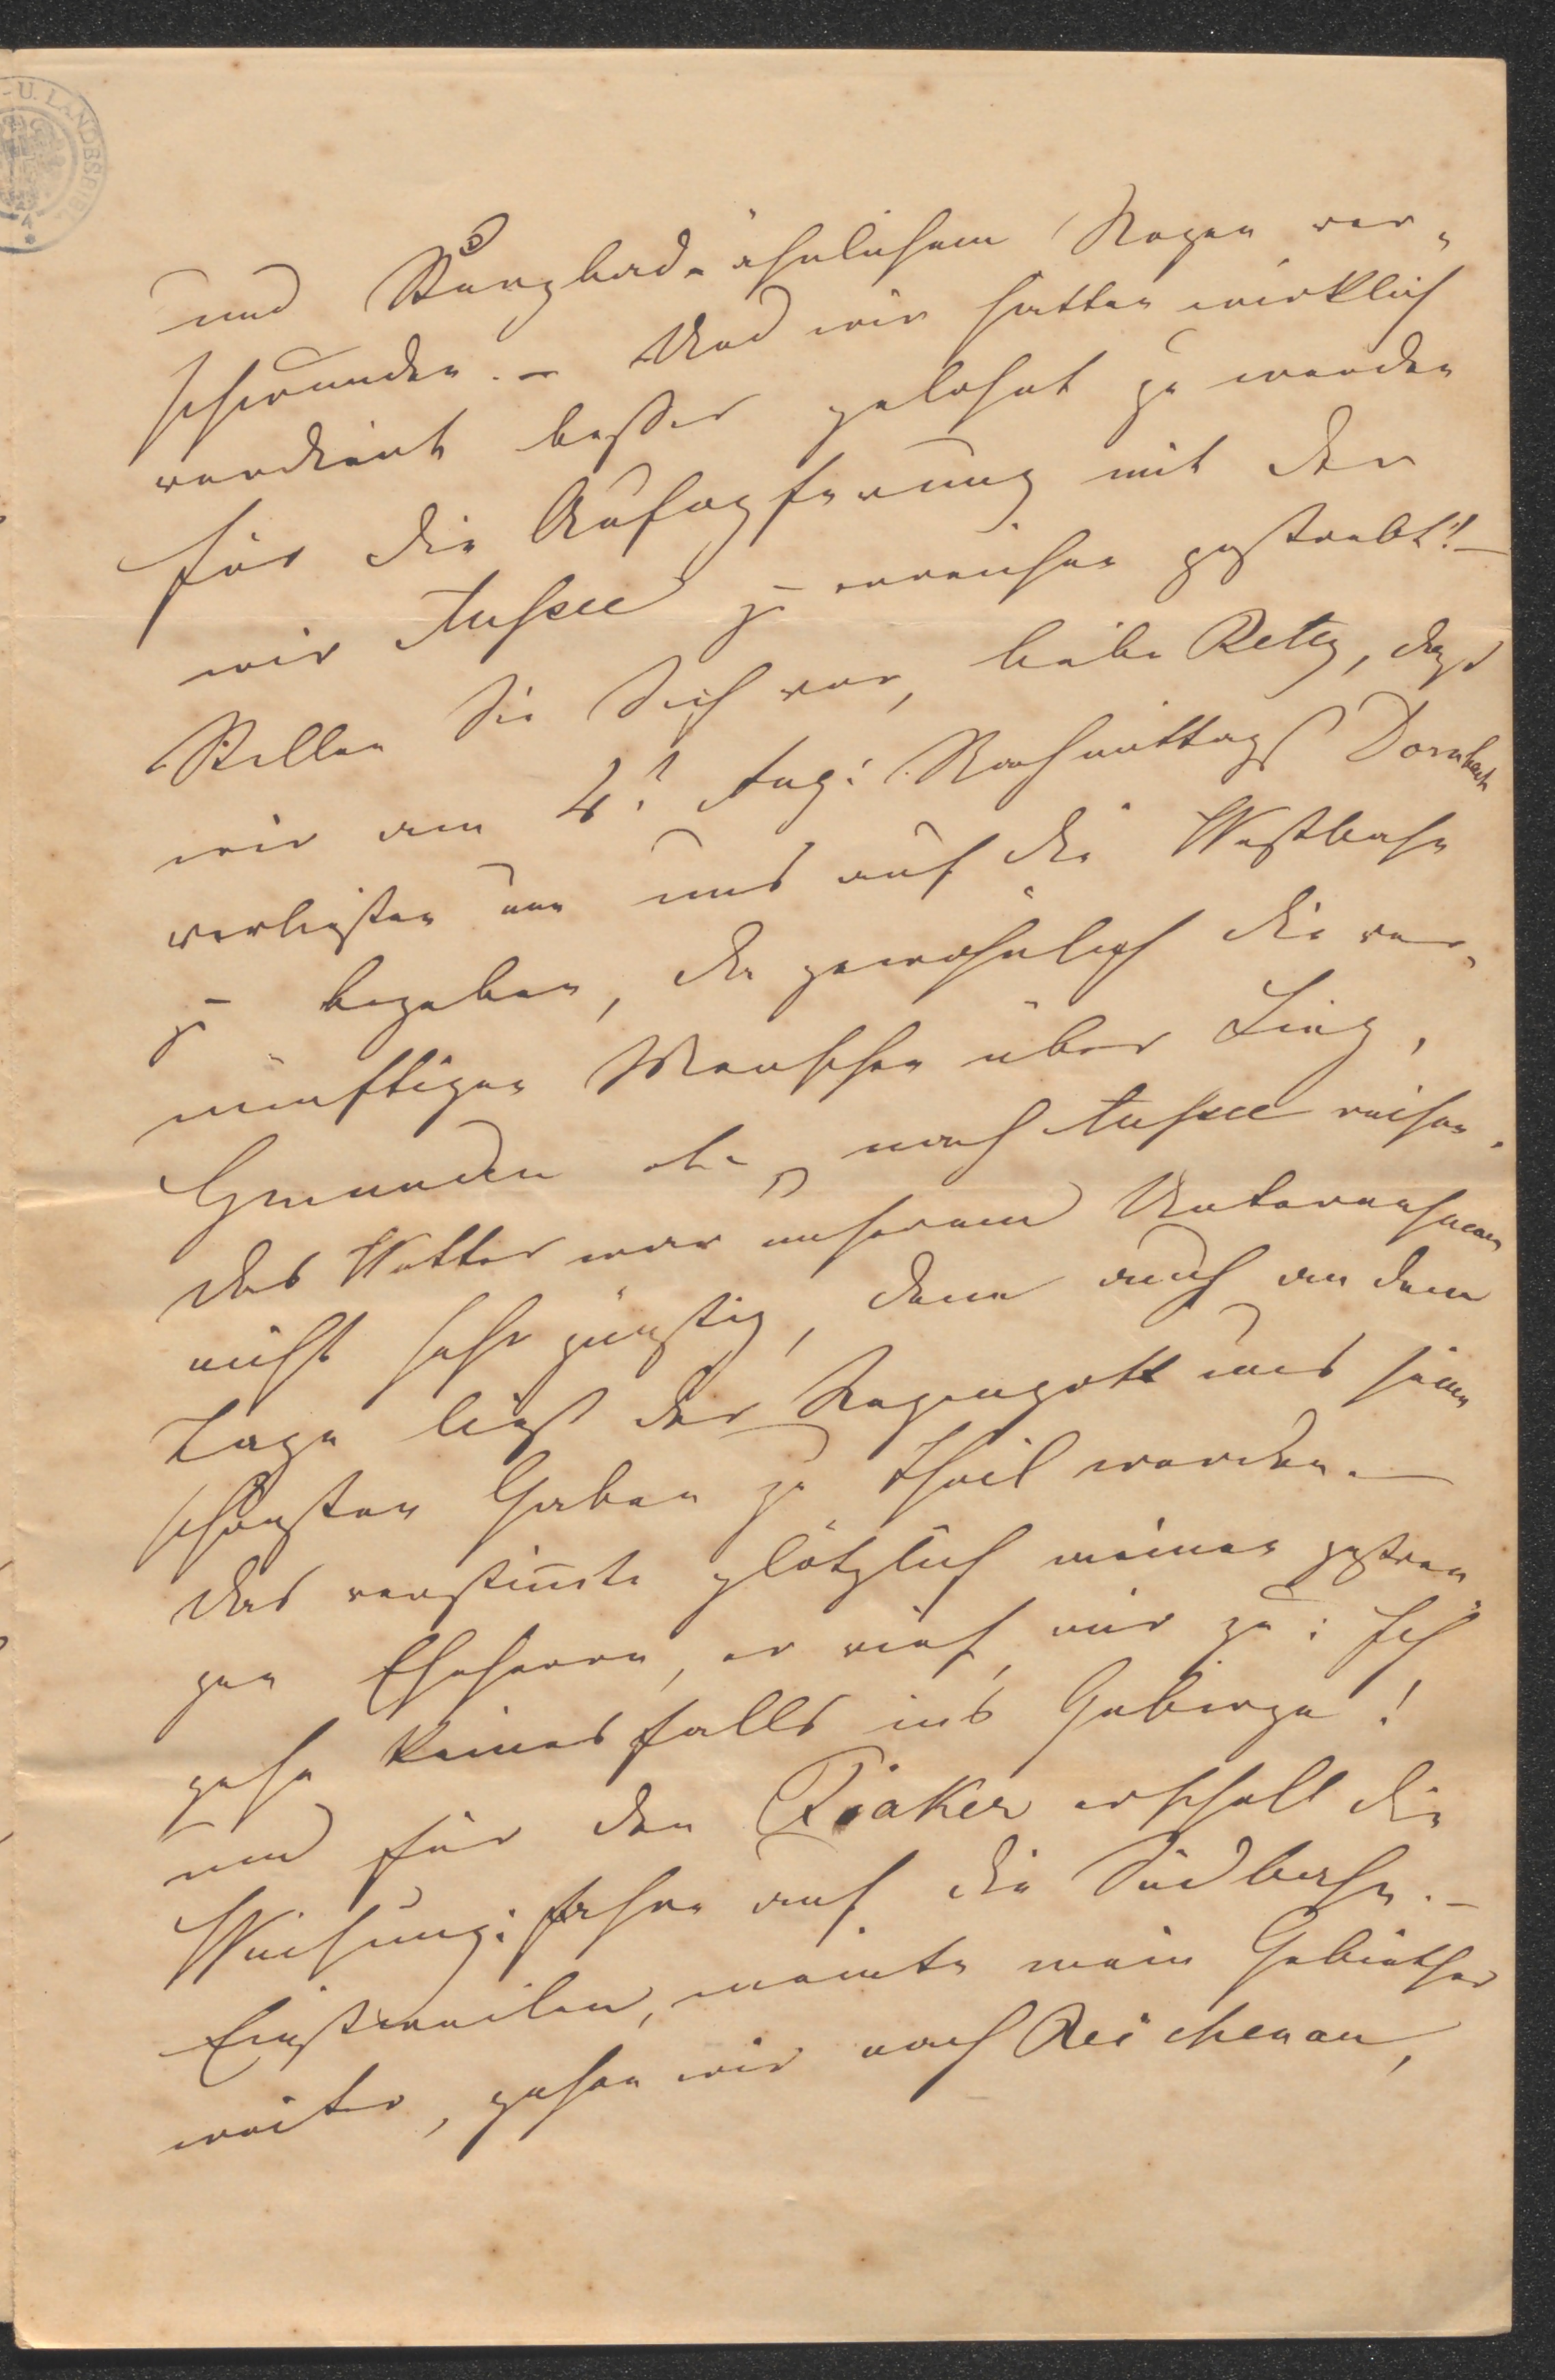 -U. LANDESBIBL
und Sturzbad-ähnlichem Regen ver-
schwunden. – Und wir hatten wirklich
verdient besser gelohnt zu werden
für die Aufopferung mit der
wir Aussee zu erreichen gestrebt! –
Stellen Sie Sich vor, liebe Betty, daß
wir am 4t Aug: Nachmittags Dornbach
verließen um uns auf die Westbahn
zu begeben, da gewöhnlich die ver-
nünftigen Menschen über Linz,
Gmunden etc nach Aussee reisen.
Das Wetter war unserem Unternehmen
nicht sehr günstig, denn auch an dem
Tage ließ der Regengott uns seine
schönsten Gaben zu Theil werden. –
Das verstim̅te plötzlich meinen gestren-
gen Eheherrn, er rief mir zu: Ich
gehe keinesfalls ins Gebirge!
und für den Fiaker erscholl die
Weisung: fahren auf die Südbahn. –
Einstweilen, meinte mein Gebiether
weiter, gehen wir nach Reichenau,